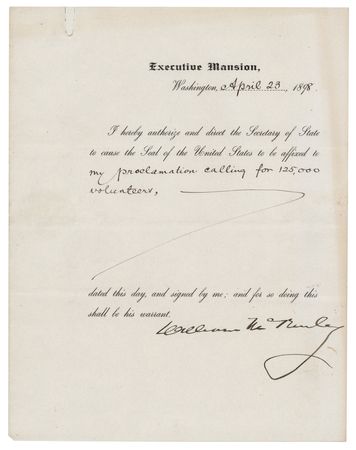 Executive Mansion,
Washington, April 23, 1898.
I hereby authorize and direct the Secretary of State
to cause the Seal of the United States to be affixed to
my proclamation calling for 125,000
volunteers,
dated this day, and signed by me; and for so doing this
shall be his warrant.
William McKinley